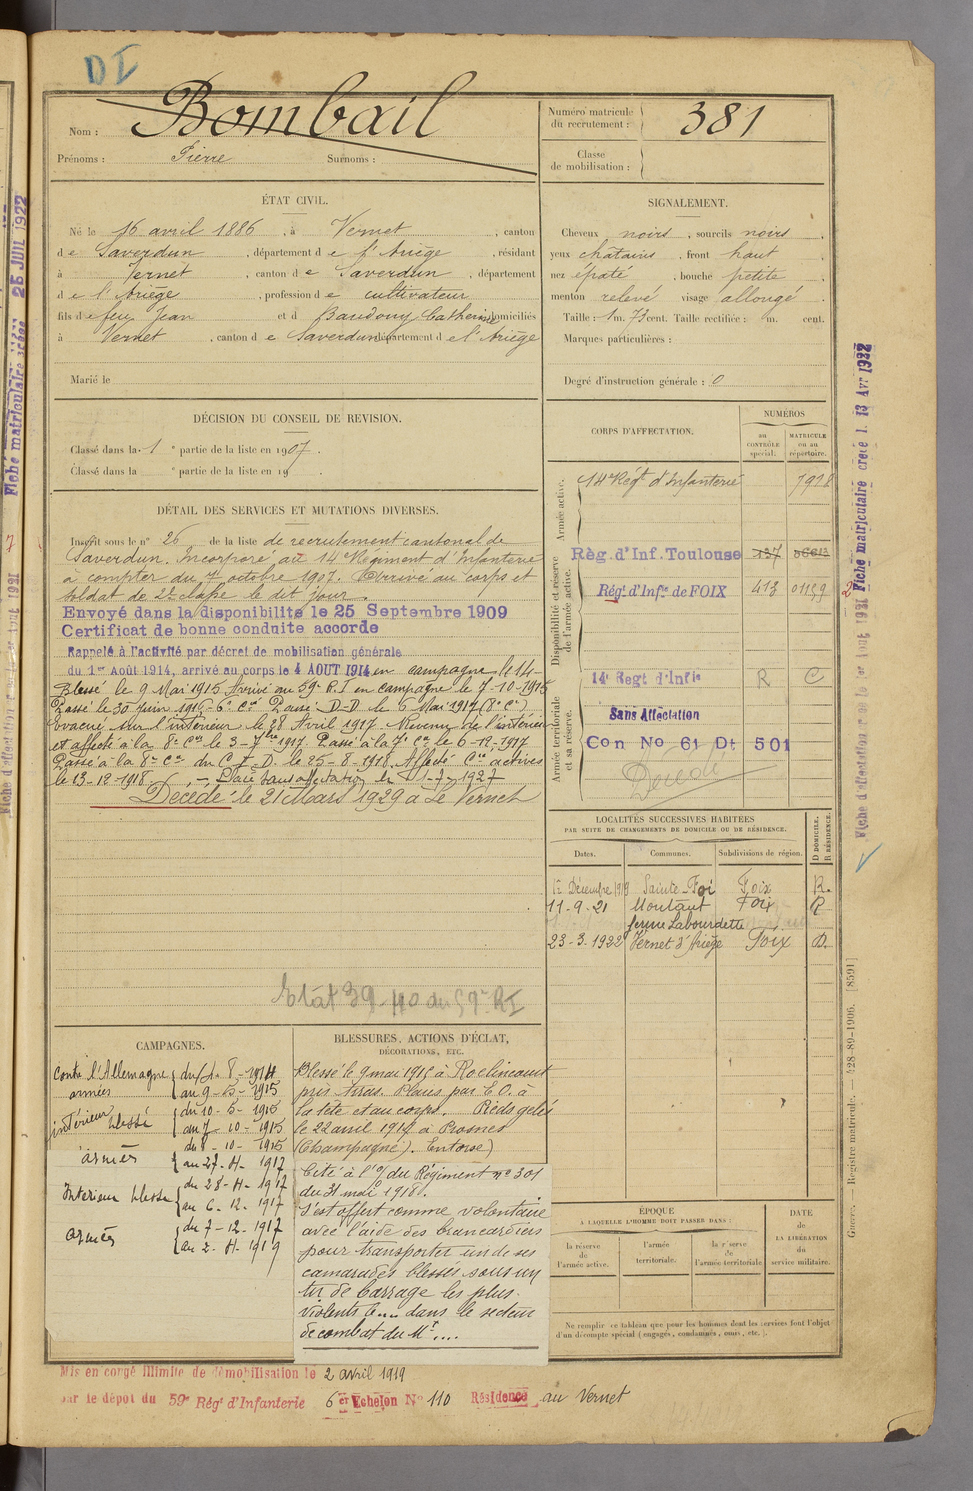 DI
Nom : Bombail
Prénoms : Pierre Surnoms :
Numéro matricule du recrutement : 381
Classe de mobilisation :
ÉTAT CIVIL.
Né le 16 avril 1886, à Vernet, canton
de Saverdun, département de l'Ariège, résidant
à Vernet, canton de Saverdun, département
de l'Ariège, profession de cultivateur
fils de feu Jean et d Baudouy Catherine domiciliés
à Vernet, canton de Saverdun, département de l'Ariège
Marié le
SIGNALEMENT.
Cheveux noirs, sourcils noirs,
yeux châtains, front haut,
nez épaté, bouche petite,
menton relevé visage allongé.
Taille : 1 m. 73 cent. Taille rectifiée : m. cent.
Marques particulières :
Degré d'instruction générale : 0
DÉCISION DU CONSEIL DE REVISION.
Classé dans la 1e partie de la liste en 1907.
Classé dans la e partie de la liste en 19 .
DÉTAIL DES SERVICES ET MUTATIONS DIVERSES.
Inscrit sous le n° 26 de la liste de recrutement cantonal de
Saverdun. Incorporé au 14e Régiment d'Infanterie
à compter du 7 octobre 1907. Arrivé au corps et
soldat de 2e classe le dit jour.
Envoyé dans la disponibilité le 25 Septembre 1909
Certificat de bonne conduite accordé
Rappelé à l'activité par décret de mobilisation générale
du 1er Août 1914, arrivé au corps le 4 AOUT 1914 en campagne le 14-
Blessé le 9 Mai 1915 Arrivé au 59e R.I en campagne le 7-10-1915
Passé le 30 Juin 1916 - 6e Cie Passé D-D le 6 Mai 1917 (8e Cie)
Evacué sur l'intérieur le 28 Avril 1917 Revenu de l'intérieur
et affecté à la 8e Cie le 3-7bre 1917. Passé à la 7e Cie le 6-12-1917
Passé à la 8e Cie du C.I.D. le 25-8-1918. Affecté Cie actives
le 13-12-1918. Placé sans affectation le 1-7-1927
Décédé le 21 Mars 1929 à Le Vernet
Etat 39-40 du 59e RI
CORPS D'AFFECTATION.
NUMÉROS
au CONTRÔLE spécial.
MATRICULE ou au répertoire.
Armée active.
14e Régt d'Infanterie 7928
Disponibilité et réserve de l'armée active.
Rég. d'Inf. Toulouse 137
Régt d'Infie de FOIX 413 01159
Armée territoriale et sa réserve.
14e Regt d'Infie R C
Sans Affectation
Con No 61 Dt 501
Décédé
LOCALITÉS SUCCESSIVES HABITÉES
PAR SUITE DE CHANGEMENTS DE DOMICILE OU DE RÉSIDENCE.
Dates. Communes. Subdivisions de région. D DOMICILE. R RÉSIDENCE.
1er Décembre 1919 Sainte-Foi Foix R.
11-9-21 Montaut Foix R
ferme Labourdette
23-3-1922 Vernet d'Ariège Foix D.
CAMPAGNES.
Contre l'Allemagne
armées
du 4-8-1914
au 9-5-1915
intérieur blessé
du 10-5-1915
au 7-10-1915
armées
du 8-10-1915
au 27-4-1917
Intérieur blessé
du 28-4-1917
au 6-12-1917
armées
du 7-12-1917
au 2-4-1919
BLESSURES, ACTIONS D'ÉCLAT,
DÉCORATIONS, ETC.
Blessé le 9 mai 1915 à Roclincourt
près Arras. Plaies par E O. à
la tête et au corps. Pieds gelés
le 22 avril 1917 à Prosnes
(Champagne). Entorse)
Cité à l'o/ du Régiment n° 301
du 31 mai 1918.
S'est offert comme volontaire
avec l'aide des brancardiers
pour transporter un de ses
camarades blessés sous un
tir de barrage les plus
violents le.... dans le secteur
de combat du Mt....
ÉPOQUE
À LAQUELLE L'HOMME DOIT PASSER DANS :
la réserve de l'armée active.
l'armée territoriale.
la réserve de l'armée territoriale
DATE de LA LIBÉRATION du service militaire.
Ne remplir ce tableau que pour les hommes dont les services font l'objet
d'un décompte spécial (engagés, condamnés, omis, etc.).
Mis en congé illimité de démobilisation le 2 avril 1919
par le dépôt du 59e Régt d'Infanterie 6er Echelon N° 110 Résidence au Vernet
Fiche matriculaire créée l. 13 Avr 1922
Fiche d'affectation du 1er Août 1921
Guerre. — Registre matricule. — 428-89-1906. [8591]
Fiche matriculaire créée 25 JUIL 1922